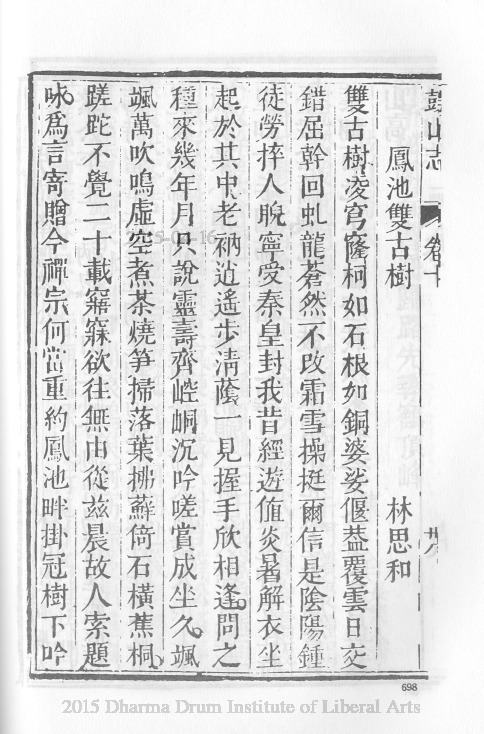 鼓山志 卷十
鳳池雙古樹 林思和
雙古樹凌穹窿柯如石根如銅婆娑偃葢覆雲日交
錯屈幹回虬龍蒼然不改霜雪操挺爾信是陰陽鍾
徒勞捽人睨寧受秦皇封我昔經遊値炎暑解衣坐
起於其中老衲逍遙步淸蔭一見握手欣相逢問之
種來幾年月只說靈壽齊崆峒沉吟嗟賞成坐久颯
颯萬吹鳴虛空煮茶燒笋掃落葉拂蘚倚石橫蕉桐
蹉跎不覺二十載寤寐欲往無由從兹晨故人索題
咏爲言寄贈今禪宗何當重約鳳池畔掛冠樹下吟
698
2015 Dharma Drum Institute of Liberal Arts